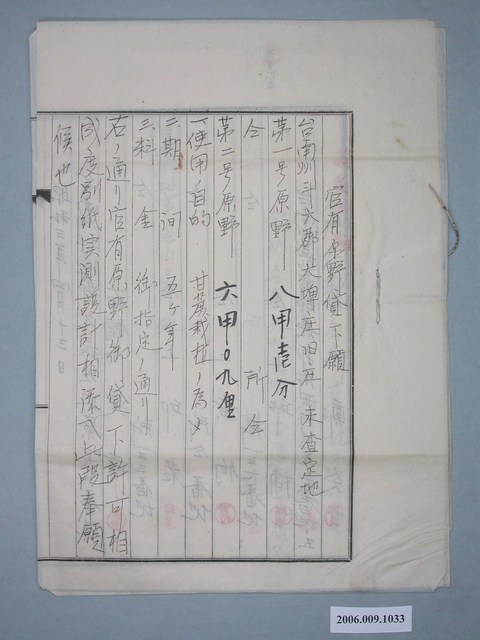 官有原野貸下願
台南州斗六郡大埤庄旧庄 未査定地
第一号原野 八甲壱分
仝 所仝
第二号原野 六甲〇九厘
一、使用ノ目的 甘蔗栽培ノ為メ
二、期間 五ヶ年
三、料金 御指定ノ通リ
右ノ通リ官有原野御貸下許可相
成度別紙実測設計相添ヘ此段奉願
候也
2006.009.1033